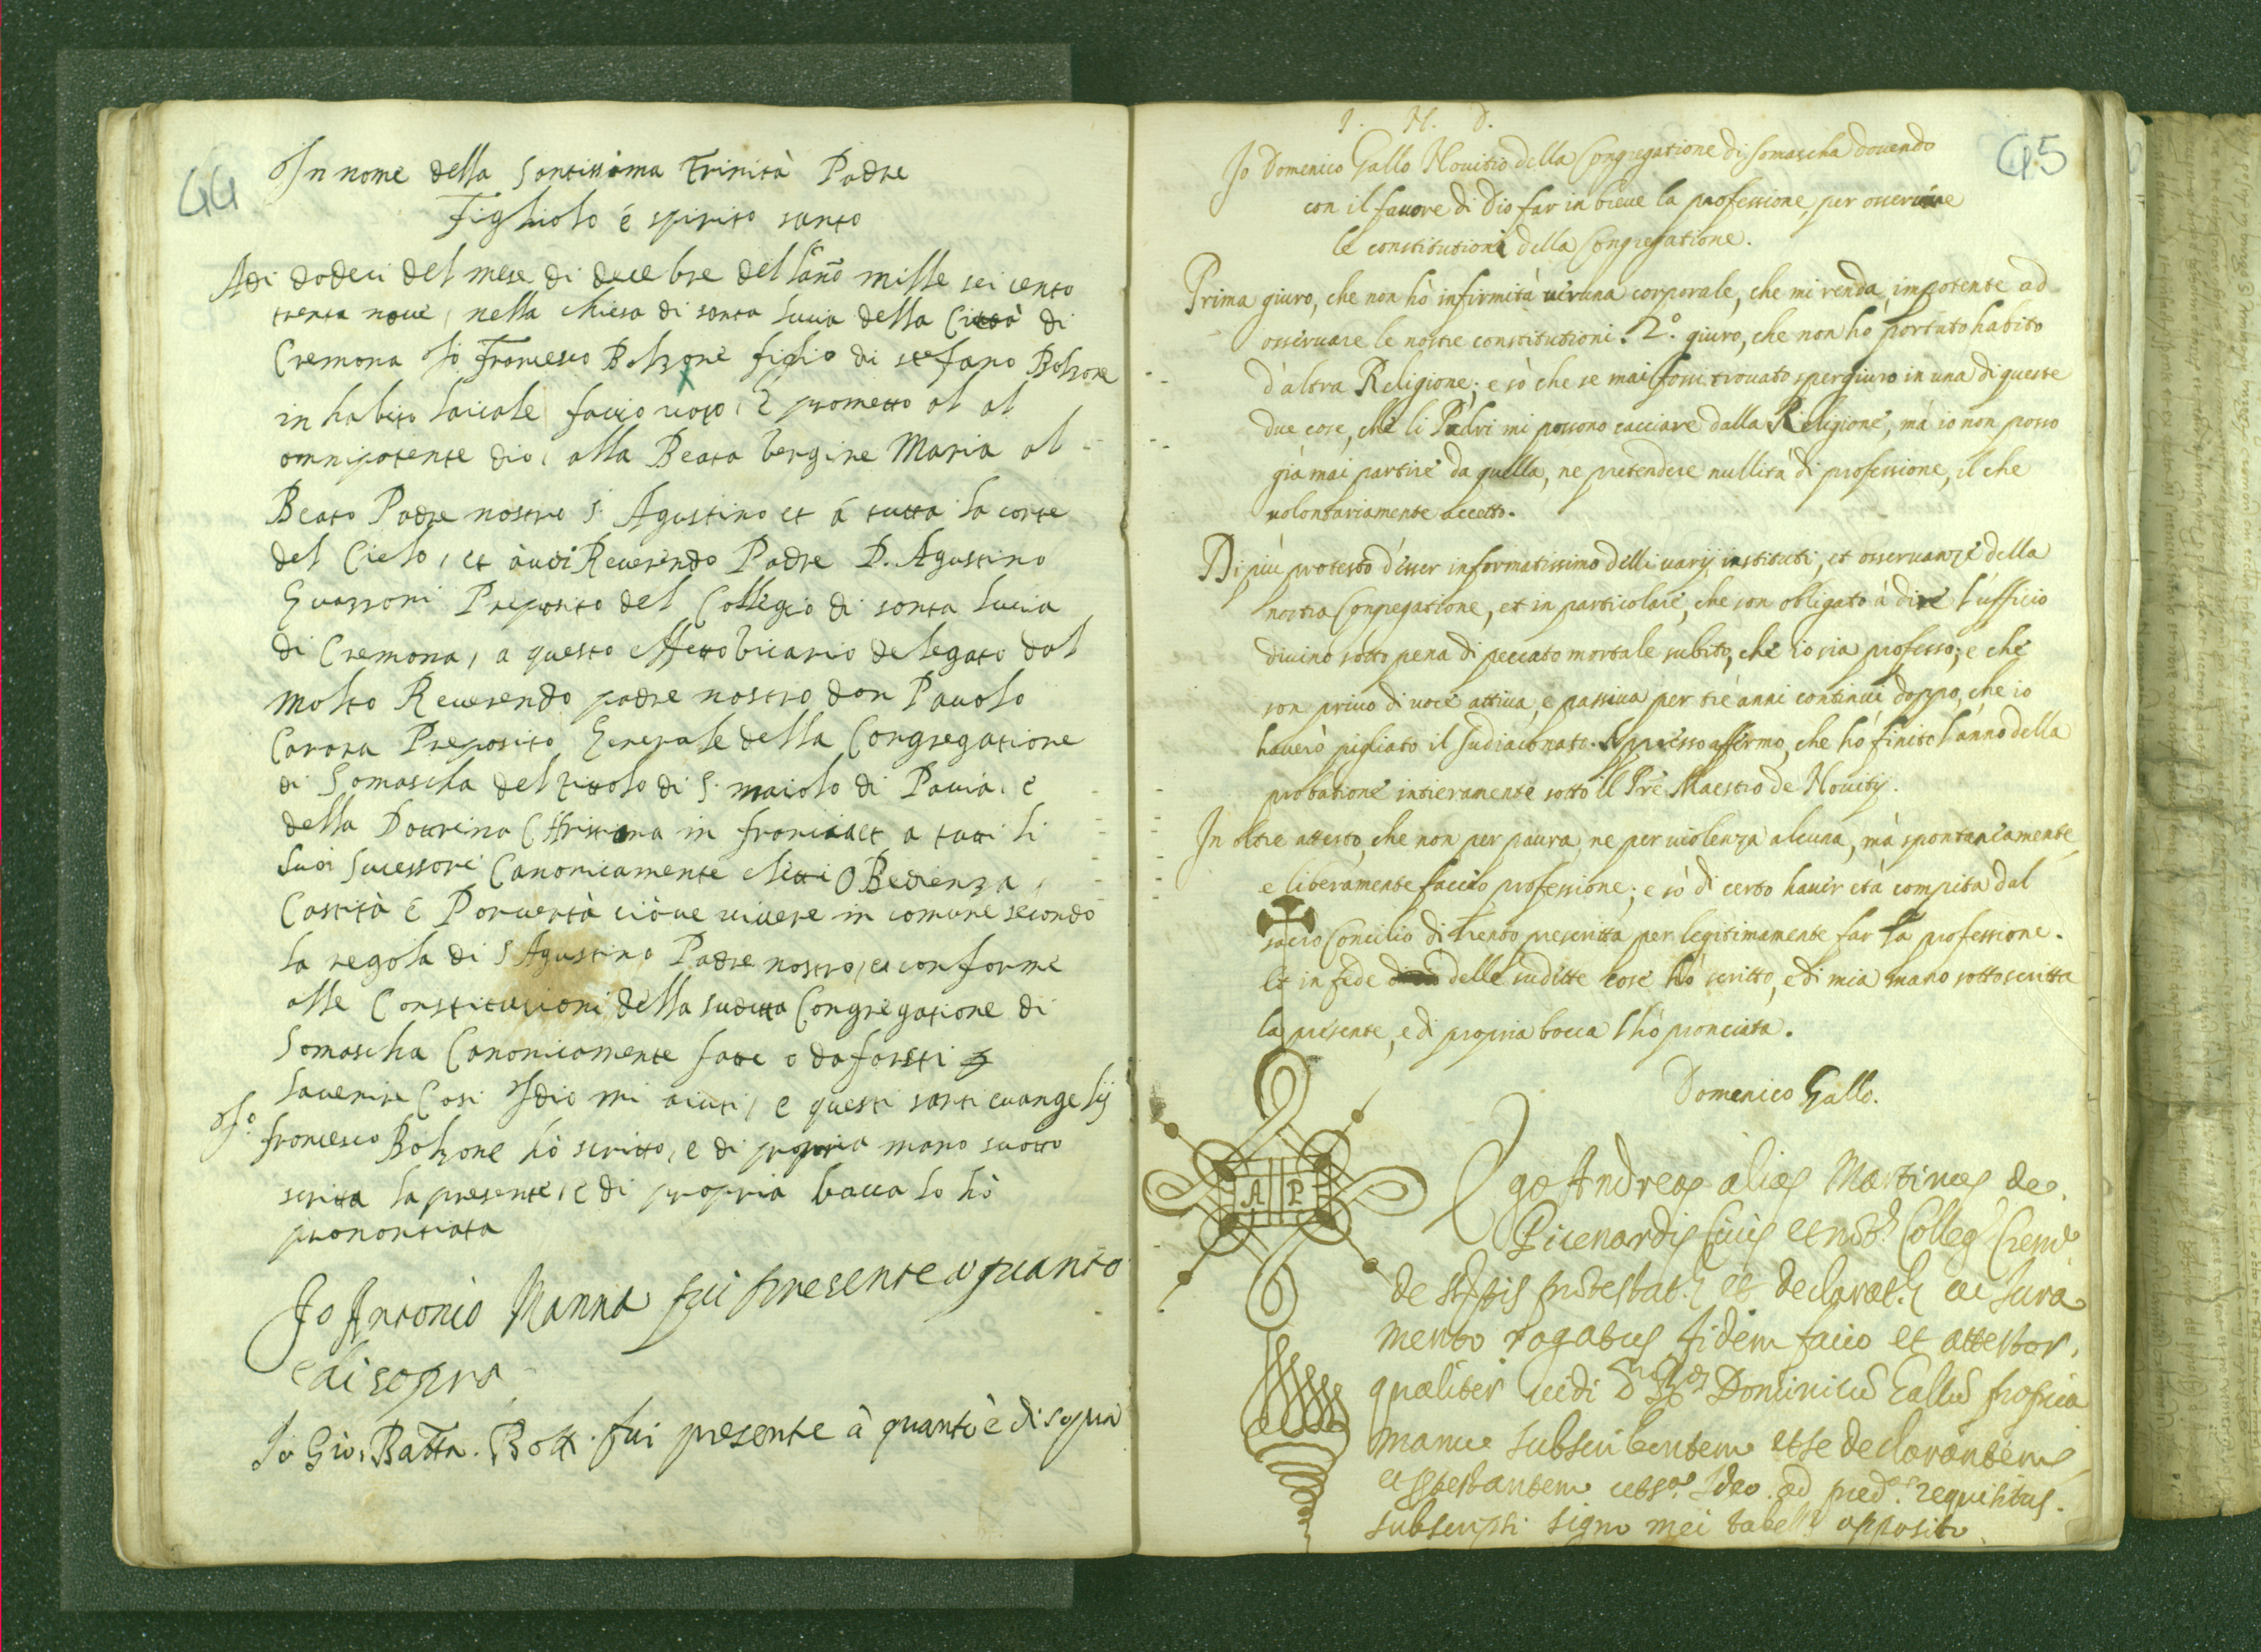 44
In nome della Santissima Trinità Padre
Figliolo é spirito santo
Adi dodeci del mese di decebre dell'ano mille sei cento
trenta nove, nella chiesa di santa Lucia della Città di
Cremona Io Francesco Bolzone figlio di stefano Bolzone
in habito laicale faccio voto, e prometto al al
omnipotente dio, alla Beata Vergine Maria al
Beato Padre nostro S. Agustino et á tutta la corte
del Cielo, et à voi Reverendo Padre D. Agustino
Guazzoni Preposito del Collegio di santa Lucia
di Cremona, a questo effetto vicario delegato dal
molto Reverendo padre nostro don Pauolo
Carara Preposito Generale della Congregatione
di Somascha del titolo di S. maiolo di Pavia, e
della Dotrina Christiana in francia et a tutti li
suoi sucessori Canonicamente eletti OBedienza,
Castità e Povertà cióue vivere in comune secondo
la regola di S Agustino Padre nostro, et conforme
alle Constitutioni della sudetta Congregatione di
Somascha Canonicamente fatte o da farsi
lavenire Cosi Idio mi aiuti, e questi santi evangelij
Io francesco Bolzone hó scritto, e di propria mano suotto
scritta la presente, e di propria bocca lo hò
prononciata
Io Antonio Manna fui presente a quanto
è di sopra
Io Gio. Batta. Bott. fui presente à quanto è di sopra
45
I. H. D.
Io Domenico Gallo Novitio della Congregatione di Somascha dovendo
con il favore di Dio far in breve la professione, per osservare
le constitutioni della Congregatione.
Prima giuro, che non hò infirmità veruna corporale, che mi renda impotente ad
osservare le nostre constitutioni. 2º. giuro, che non hó portato habito
d'altra Religione; e sò che se mai fossi trovato spergiuro in una di queste
due cose, che li Padri mi possono cacciare dalla Religione, mà io non posso
già mai partire da quella, ne pretendere nullità di professione, il che
volontariamente accetto.
Di più protesto d'esser informatissimo delli varij instituti, et osservanze della
nostra Congregatione, et in particolare, che son obligato à dire l'ufficio
divino sotto pena di peccato mortale subito, che io sia professo; e che
son privo di voce attiva, e passiva per tre anni continui doppo, che io
haverò pigliato il sudiaconato. Appresso affermo, che hó finito l'anno della
probatione intieramente sotto il Pre Maestro de Novitij.
In oltre attesto, che non per paura, ne per violenza alcuna, mà spontaneamente,
e liberamente faccio professione; e sò di certo haver età compita dal
sacro Concilio di Trento prescritta per legitimamente far la professione.
Et in fede delle sudette cose hò scritto, e di mia mano sottoscritta
la presente, e di propria bocca l'hò pronciata.
Domenico Gallo.
A P
Ego Andreas alias Martinus de
Picenardis Civis et not. Colleg. Crem.
de protestat. et declarat. ac Jura
mento rogatus fidem facio et attestor,
qualiter vidi Dominicum Gallum propria
manu subscribentem et se declarantem
et ptestantem ut sa. Ideo ad pred. requisitus
subscripsi signo mei tabell. apposito.